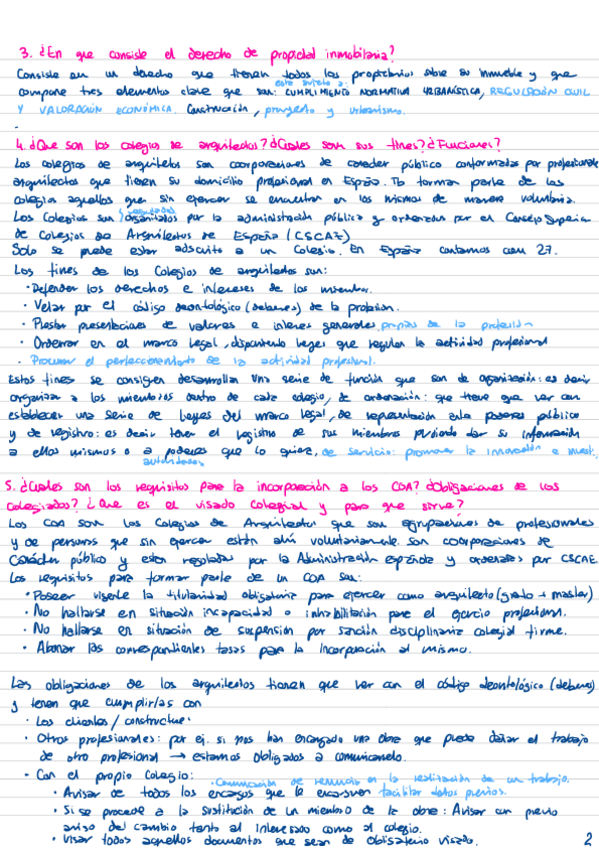 3. ¿En que consiste el derecho de propiedad inmobiliaria?
Consiste en un derecho que tienen todos los propietarios sobre su inmueble y que
esta sujeto a:
compone tres elementos clave que son: CUMPLIMIENTO NORMATIVA URBANÍSTICA, REGULACIÓN CIVIL
Y VALORACIÓN ECONÓMICA. Construcción, proyecto y urbanismo.
4. ¿Que son los colegios de arquitectos? ¿Cuales son sus fines? ¿Funciones?
Los colegios de arquitetos son corporaciones de carácter público conformadas por profesionales
arquitectos que tienen su domicilio profesional en España. Tb forman parte de los
colegios aquellos que sin ejercer se encuentran en los mismos de manera voluntaria.
Los Colegios son organizados por la administración pública y ordenados por el Consejo Superior
regulados
de Colegios de Arquitectos de España (CSCAE)
Solo se puede estar adscrito a un Colegio. En España contamos con 27.
Los fines de los Colegios de arquitectos son:
· Defender los derechos e intereses de los miembros.
· Velar por el código deontológico (deberes) de la profesión.
· Prestar prestaciones de valores e interes generales propias de la profesión
· Ordenar en el marco legal, dispuntando leyes que regulan la actividad profesional
· Procurar el perfeccionamiento de la actividad profesional.
Estos fines se consiguen desarrollan una serie de función que son de organización: es decir
organizar a los miembros dentro de cada colegio, de ordenación: que tiene que ver con
establecer una serie de leyes del marco legal, de representación ante poderes público
y de registro: es decir tener el registro de sus miembros pudiendo dar su información
a ellos mismos o a poderes que lo quiera, de servicio: promover la innovación e invest.
autoridades
5. ¿Cuales son los requisitos para la incorporación a los COA? ¿Obligaciones de los
colegiados? ¿Que es el visado colegial y para que sirve?
Los COA son los Colegios de Arquitectos que son agrupaciones de profesionales
y de personas que sin ejercer están ahí voluntariamente. Son corporaciones de
Carácter público y estan reguladas por la Administración española y ordenadas por CSCAE.
Los requisitos para formar parte de un COA son:
· Poseer vigente la titularidad obligatoria para ejercer como arquitecto (grado + master)
· No hallarse en situación incapacidad o inhabilitación para el ejercio profesional.
· No hallarse en situación de suspensión por sanción disciplinaria colegial firme.
· Abonar las correspondientes tasas para la incorporación al mismo.
Las obligaciones de los arquitectos tienen que ver con el código deontológico (deberes)
y tienen que cumplirlas con
· Los clientes / constructur.
· Otros profesionales: por ej. si nos han encargado una obra que puede dañar el trabajo
de otro profesional → estamos obligados a comunicarselo.
· Con el propio colegio: · Comunicación de renuncia en la realización de un trabajo.
· Avisar de todos los encargos que le encarguen facilitar datos previos.
· Si se procede a la sustitución de un miembro de la obra: Avisar con previo
aviso del cambio tanto al interesado como al colegio.
· Visar todos aquellos documentos que sean de obligatorio visado.
2